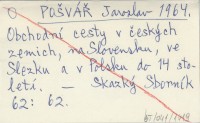 POŠVÁŘ Jaroslav 1964.
Obchodní cesty v českých
zemích, na Slovensku, ve
Slezku a v Polsku do 14 sto-
letí. — Slezský Sborník
62: 62.